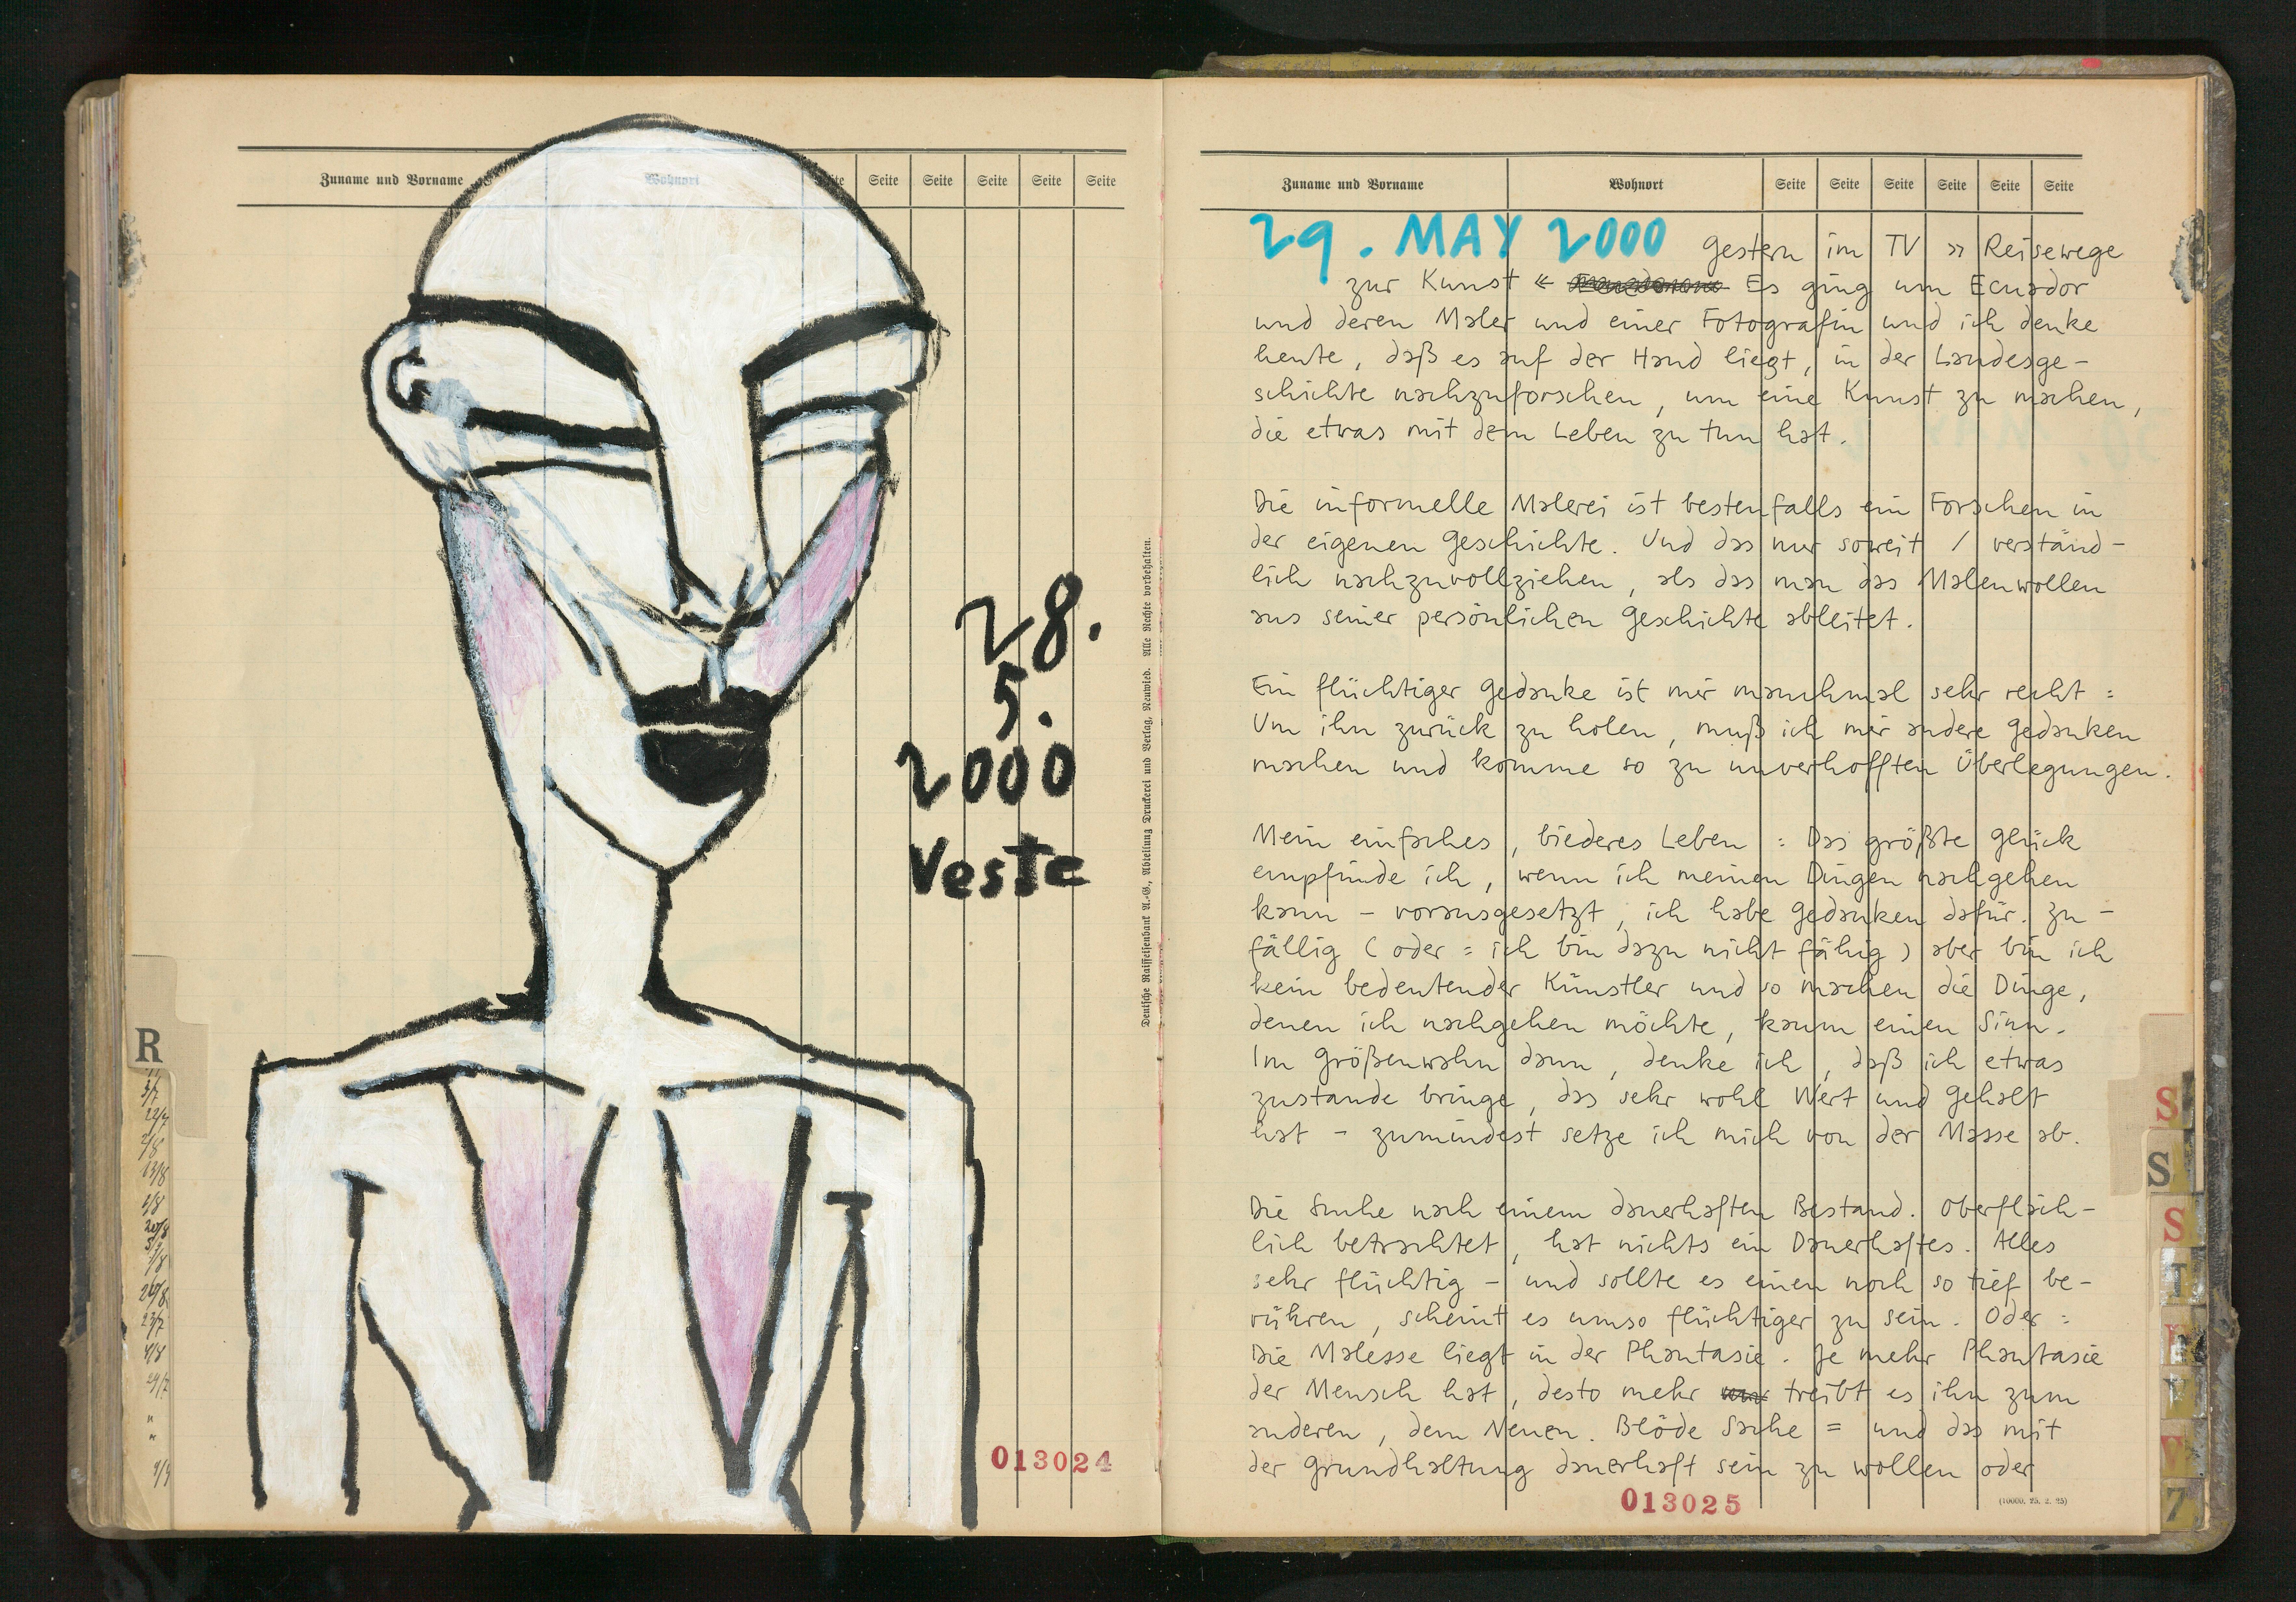 Zuname und Vorname Wohnort Seite Seite Seite Seite Seite
28.
5.
2000
Veste
013024
R
Deutsche Raiffeisenbank A.-G., Abteilung Druckerei und Verlag, Neuwied. Alle Rechte vorbehalten.
Zuname und Vorname Wohnort Seite Seite Seite Seite Seite Seite
29. MAY 2000 Gestern im TV » Reisewege
zur Kunst « Es ging um Ecuador
und deren Maler und einer Fotografin und ich denke
heute, daß es auf der Hand liegt, in der Landesge-
schichte nachzuforschen, um eine Kunst zu machen,
die etwas mit dem Leben zu tun hat.
Die informelle Malerei ist bestenfalls ein Forschen in
der eigenen Geschichte. Und das nur soweit / verständ-
lich nachzuvollziehen, als das man das Malenwollen
aus seiner persönlichen Geschichte ableitet.
Ein flüchtiger Gedanke ist mir manchmal sehr recht :
Um ihn zurück zu holen, muß ich mir andere Gedanken
machen und komme so zu unverhofften Überlegungen.
Mein einfaches, biederes Leben : Das größte Glück
empfinde ich, wenn ich meinen Dingen nachgehen
kann - vorausgesetzt, ich habe Gedanken dafür. Zu-
fällig ( oder : ich bin dazu nicht fähig ) aber bin ich
kein bedeutender Künstler und so machen die Dinge,
denen ich nachgehen möchte, kaum einen Sinn.
Im Größenwahn dann, denke ich, daß ich etwas
zustande bringe, das sehr wohl Wert und Gehalt
hat - zumindest setze ich mich von der Masse ab.
Die Suche nach einem dauerhaften Bestand. Oberfläch-
lich betrachtet, hat nichts ein Dauerhaftes. Alles
sehr flüchtig - und sollte es einen noch so tief be-
rühren, scheint es umso flüchtiger zu sein. Oder :
Die Malesse liegt in der Phantasie. Je mehr Phantasie
der Mensch hat, desto mehr treibt es ihn zum
anderen, dem Neuen. Blöde Sache = und das mit
der Grundhaltung dauerhaft sein zu wollen oder
013025
(10000. 25. 2. 25)
S
S
S
T
7